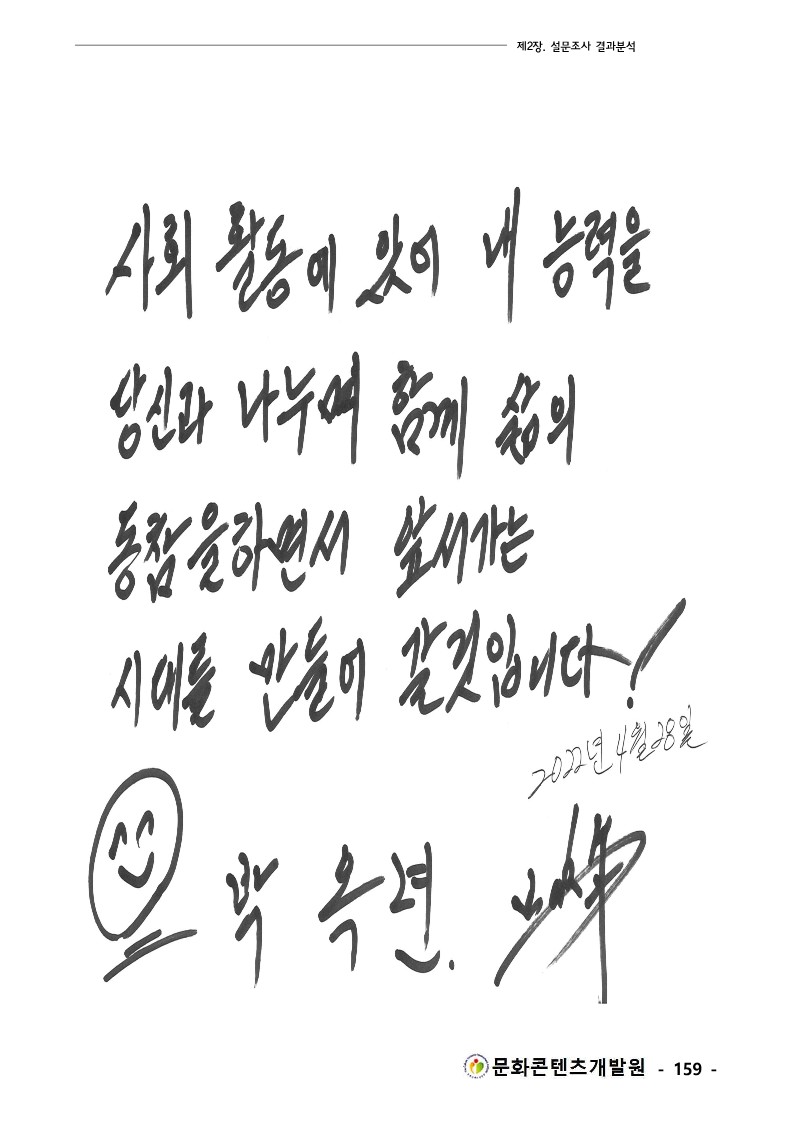 제2장. 설문조사 결과분석
사회 활동에 있어 내 능력을
당신과 나누며 함께 삶의
동참을하면서 앞서가는
시대를 만들어 갈것입니다~!
2022년 4월 28일
박 옥 련.
문화콘텐츠개발원 - 159 -